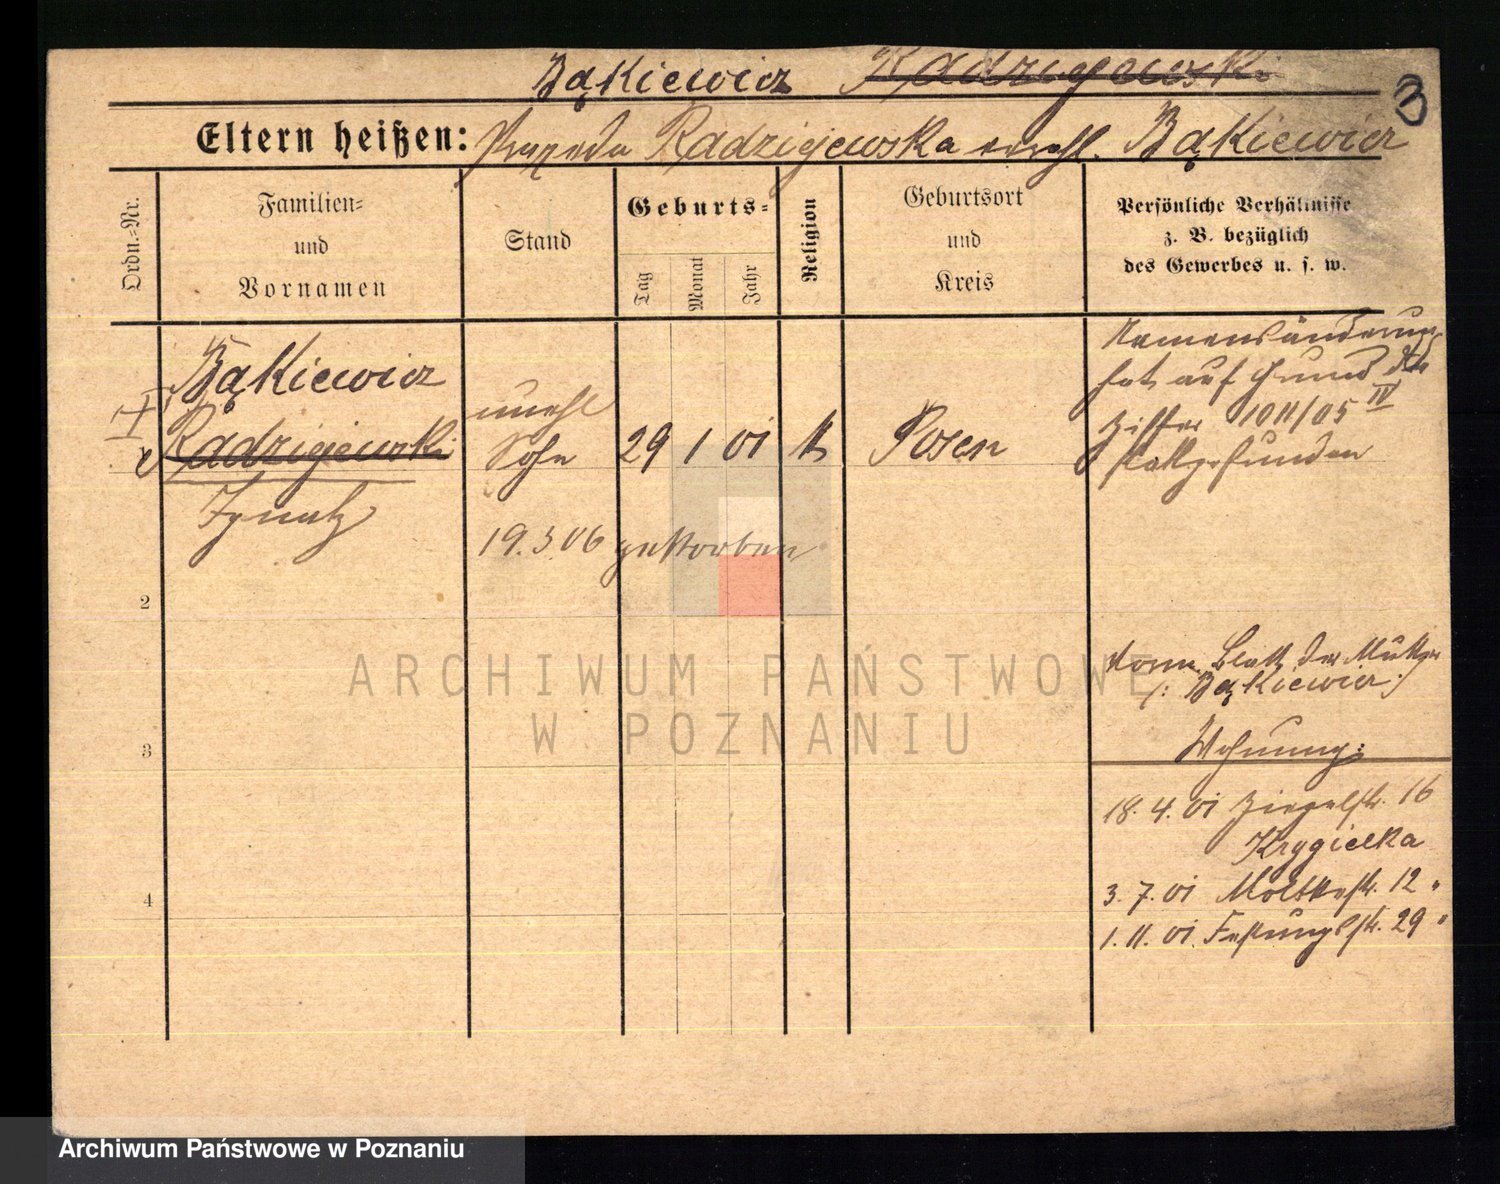 Bąkiewicz Radziejewski
3
Eltern heißen: Radziejewska verehl. Bąkiewicz
Ordn.-Nr.
Familien- und Vornamen
Stand
Geburts-
Tag
Monat
Jahr
Religion
Geburtsort und Kreis
Persönliche Verhältnisse
z. B. bezüglich
des Gewerbes u. s. w.
Bąkiewicz
Radziejewski
Ignatz
unehl
Sohn
29 1 01 k Posen
19.3 06 gestorben
Namensänderung
hat auf Grund der
Ziffer 1011/05 IV
stattgefunden
2
3
4
Blatt der Mutter
/: Bąkiewicz :/
Wohnung:
18. 4. 01 Ziegelstr. 16
Krygielka
3. 7. 01 Moltkestr. 12 "
1. 11. 01 Festungsstr. 29 "
ARCHIWUM PAŃSTWOWE
W POZNANIU
Archiwum Państwowe w Poznaniu